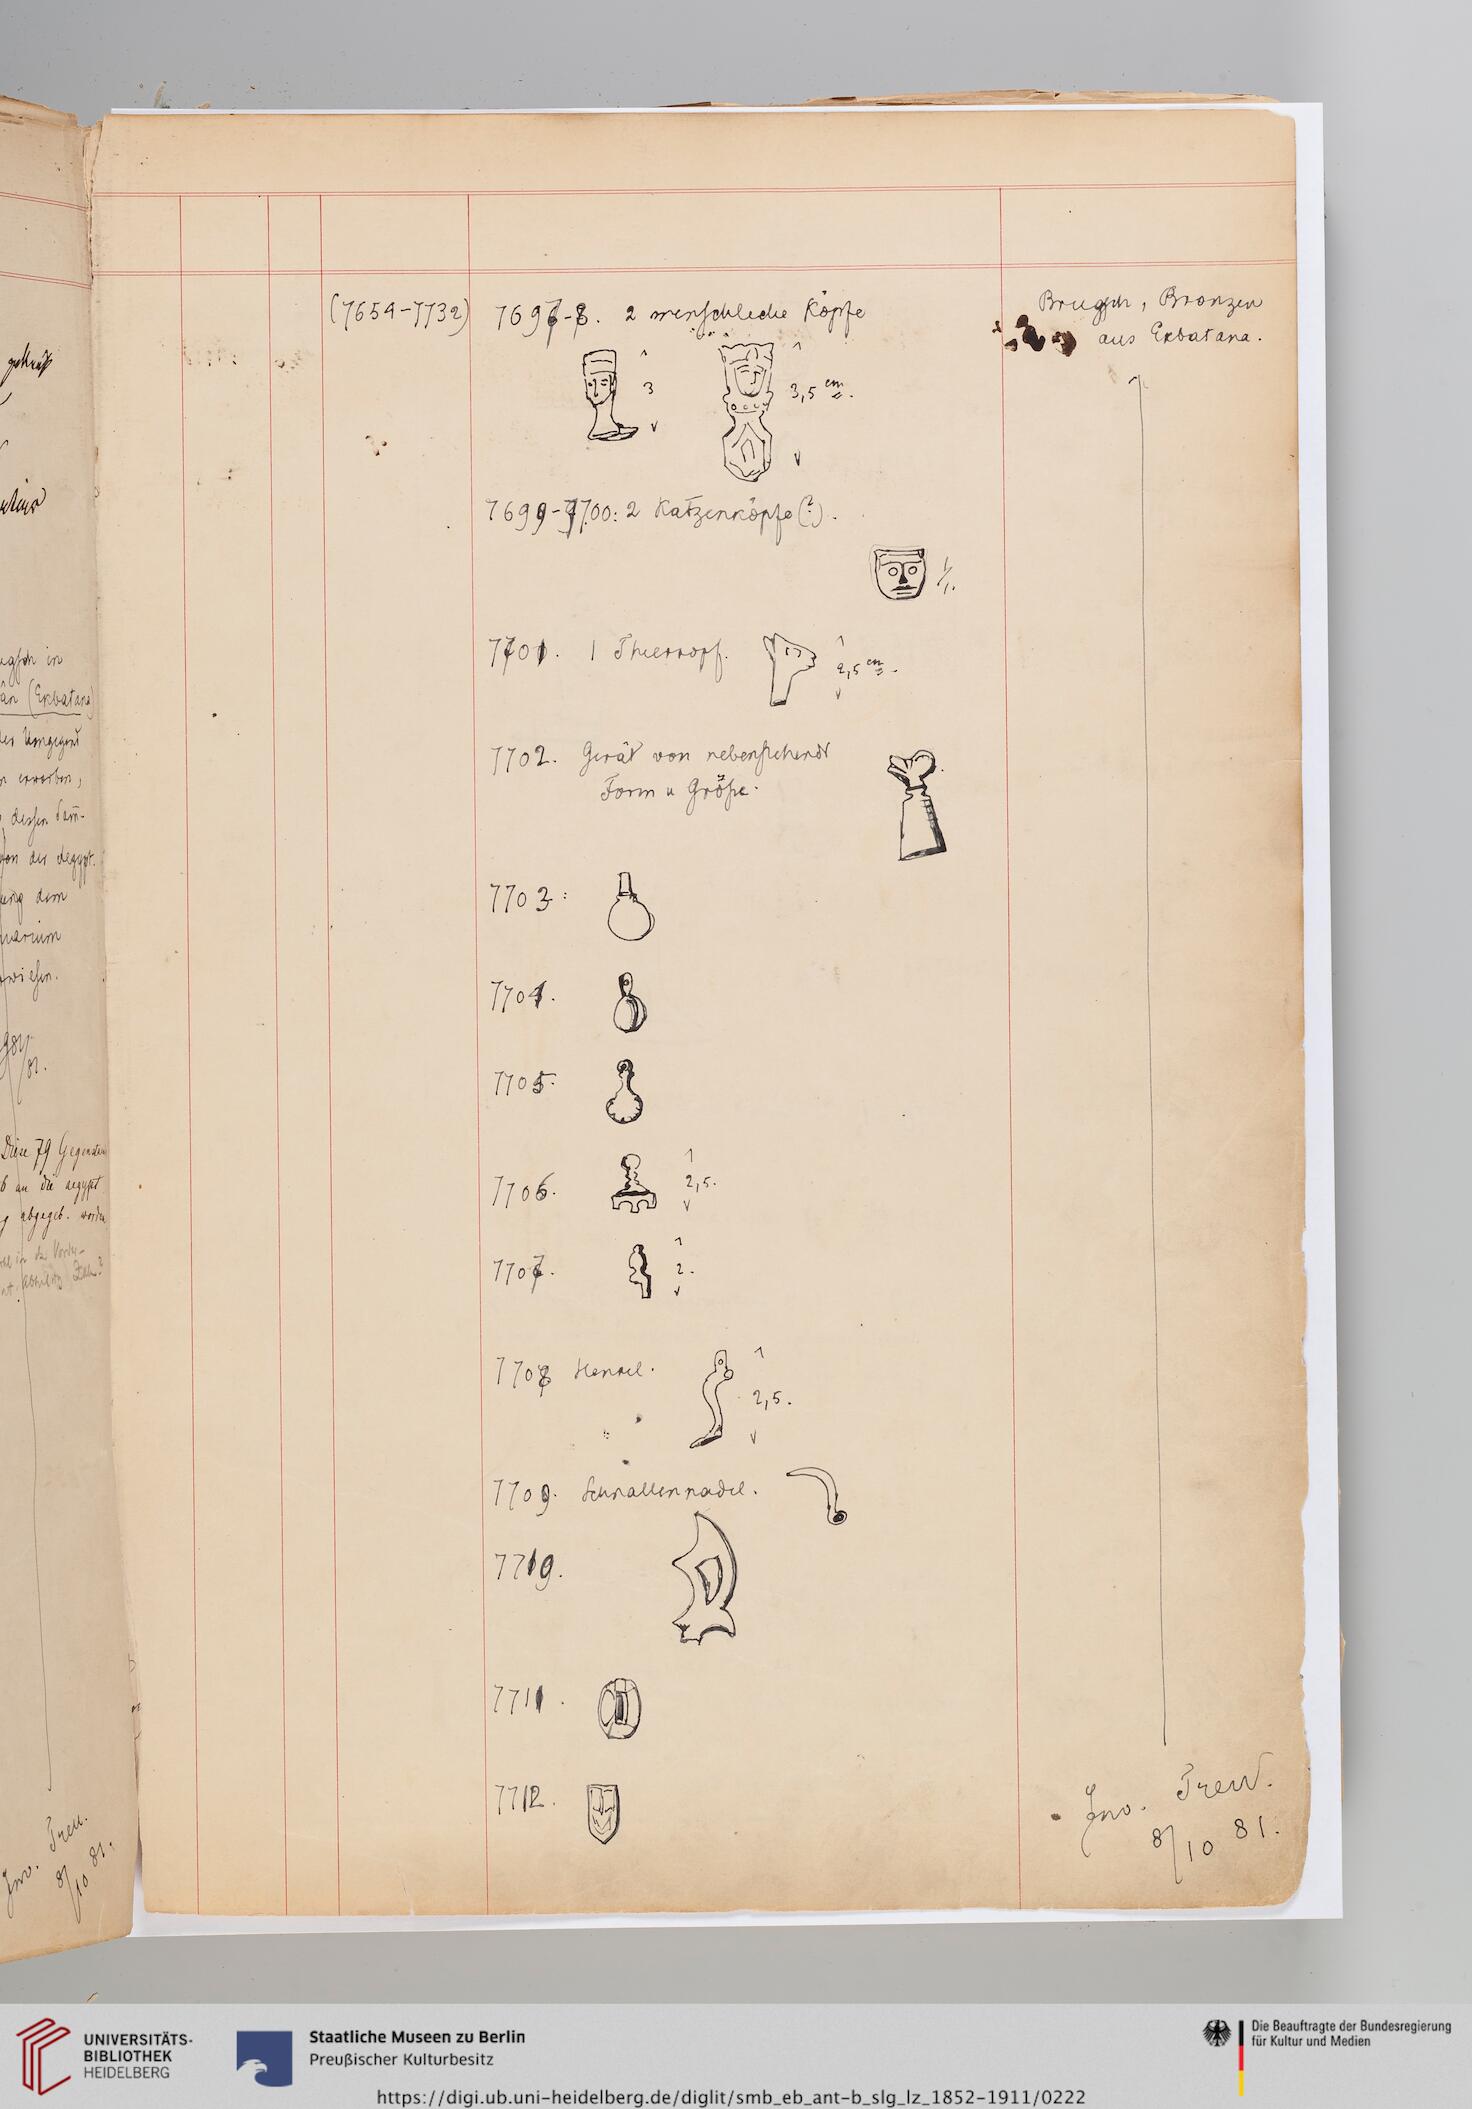 (7654-7732)
7697-8. 2 menschliche Köpfe
Brugsch, Bronzen
aus Ekbatana.
3
3,5 cm.
7699-7700: 2 Katzenköpfe (?).
1/1.
7701. 1 Thierkopf.
2,5 cm.
7702. Gerät von nebenstehendr
Form u Größe.
7703:
7704.
7705.
7706.
2,5.
7707.
2.
7708 Henkel.
2,5.
7709. Schnallennadel.
7710.
7711.
7712.
Inv. Treu.
8/10 81.
gekauft
in
(Ekbatana)
der Umgegend
erworben,
dessen Sam-
von der Aegypt.
dem
wiesen.
81.
Diese 79 Gegenstän
an die aegypt.
abgegeb. worden
in der Vorder-
Inv. Treu.
8/10 81.
UNIVERSITÄTS-
BIBLIOTHEK
HEIDELBERG
Staatliche Museen zu Berlin
Preußischer Kulturbesitz
Die Beauftragte der Bundesregierung
für Kultur und Medien
https://digi.ub.uni-heidelberg.de/diglit/smb_eb_ant-b_slg_lz_1852-1911/0222